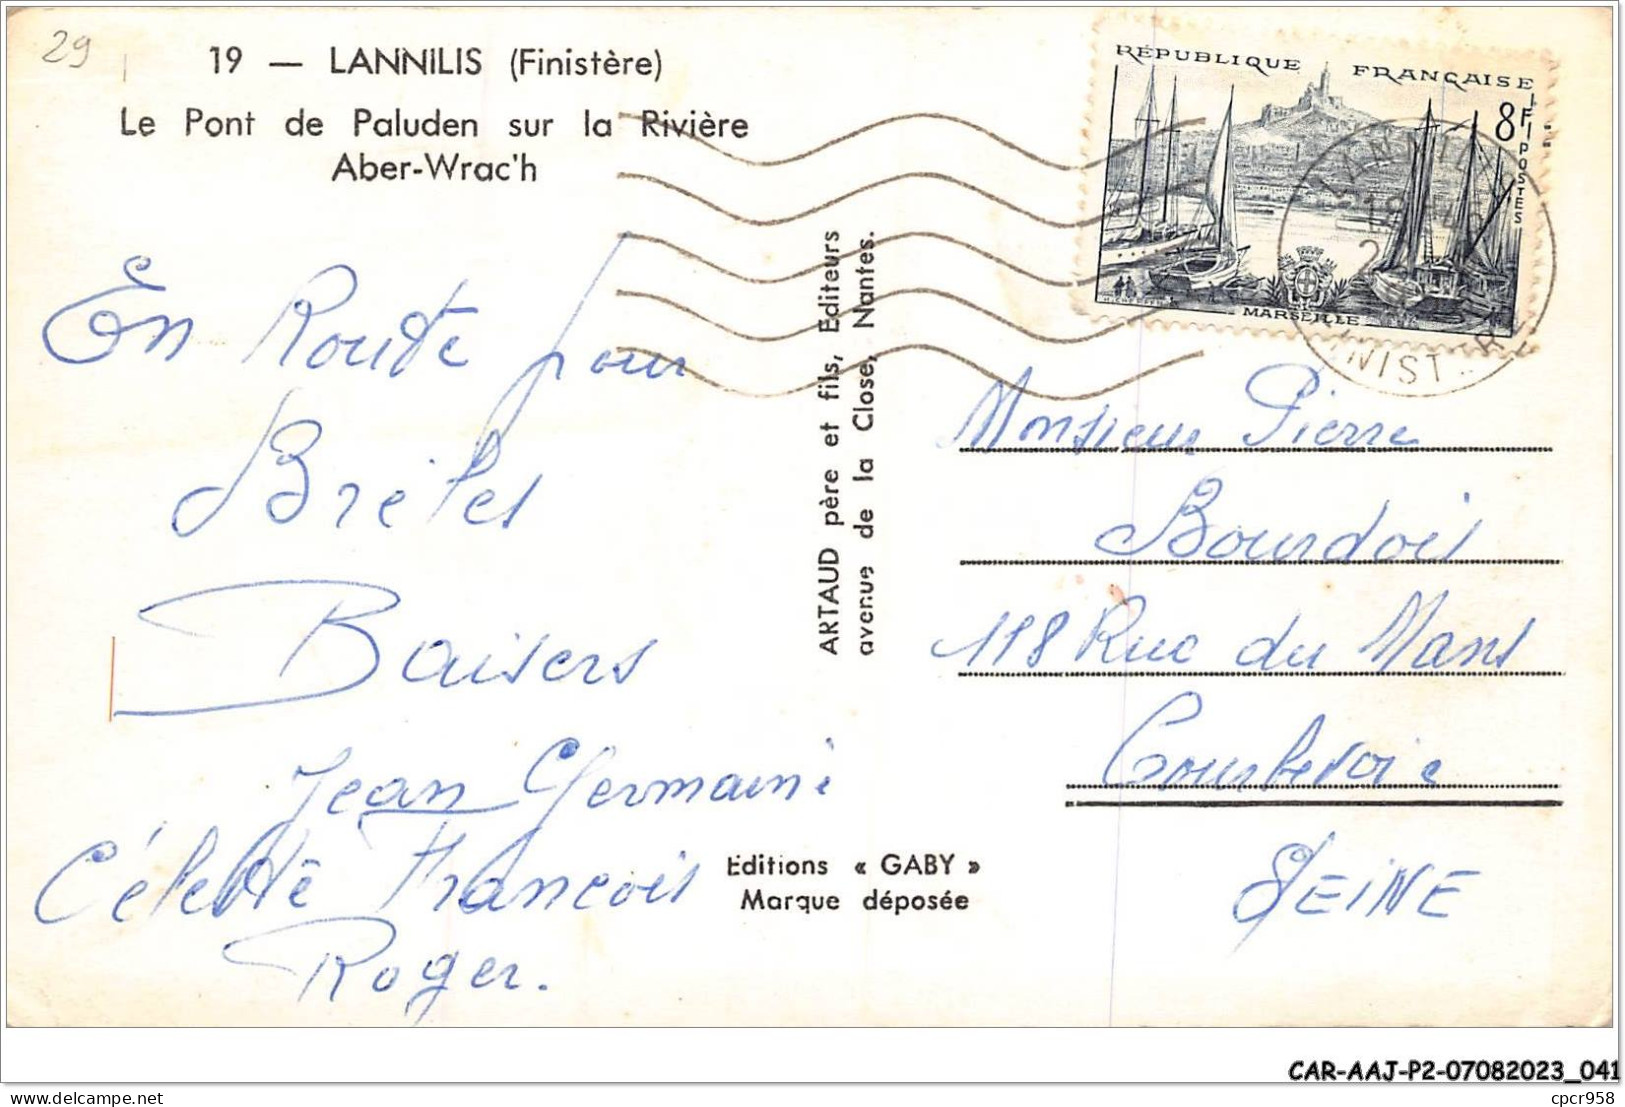 29
19 — LANNILIS (Finistère)
Le Pont de Paluden sur la Rivière
Aber-Wrac'h
RÉPUBLIQUE FRANÇAISE
8F
POSTES
MARSEILLE
LANNILIS
FINISTÈRE
En Route pour
Brélès
Baisers
Jean Germaine
Célette Francois
Roger.
ARTAUD père et fils, Editeurs
avenue de la Close, Nantes.
Editions « GABY »
Marque déposée
Monsieur Pierre
Bourdois
118 Rue du Mans
Courbevoie
SEINE
CAR-AAJ-P2-07082023_041
cpcr958